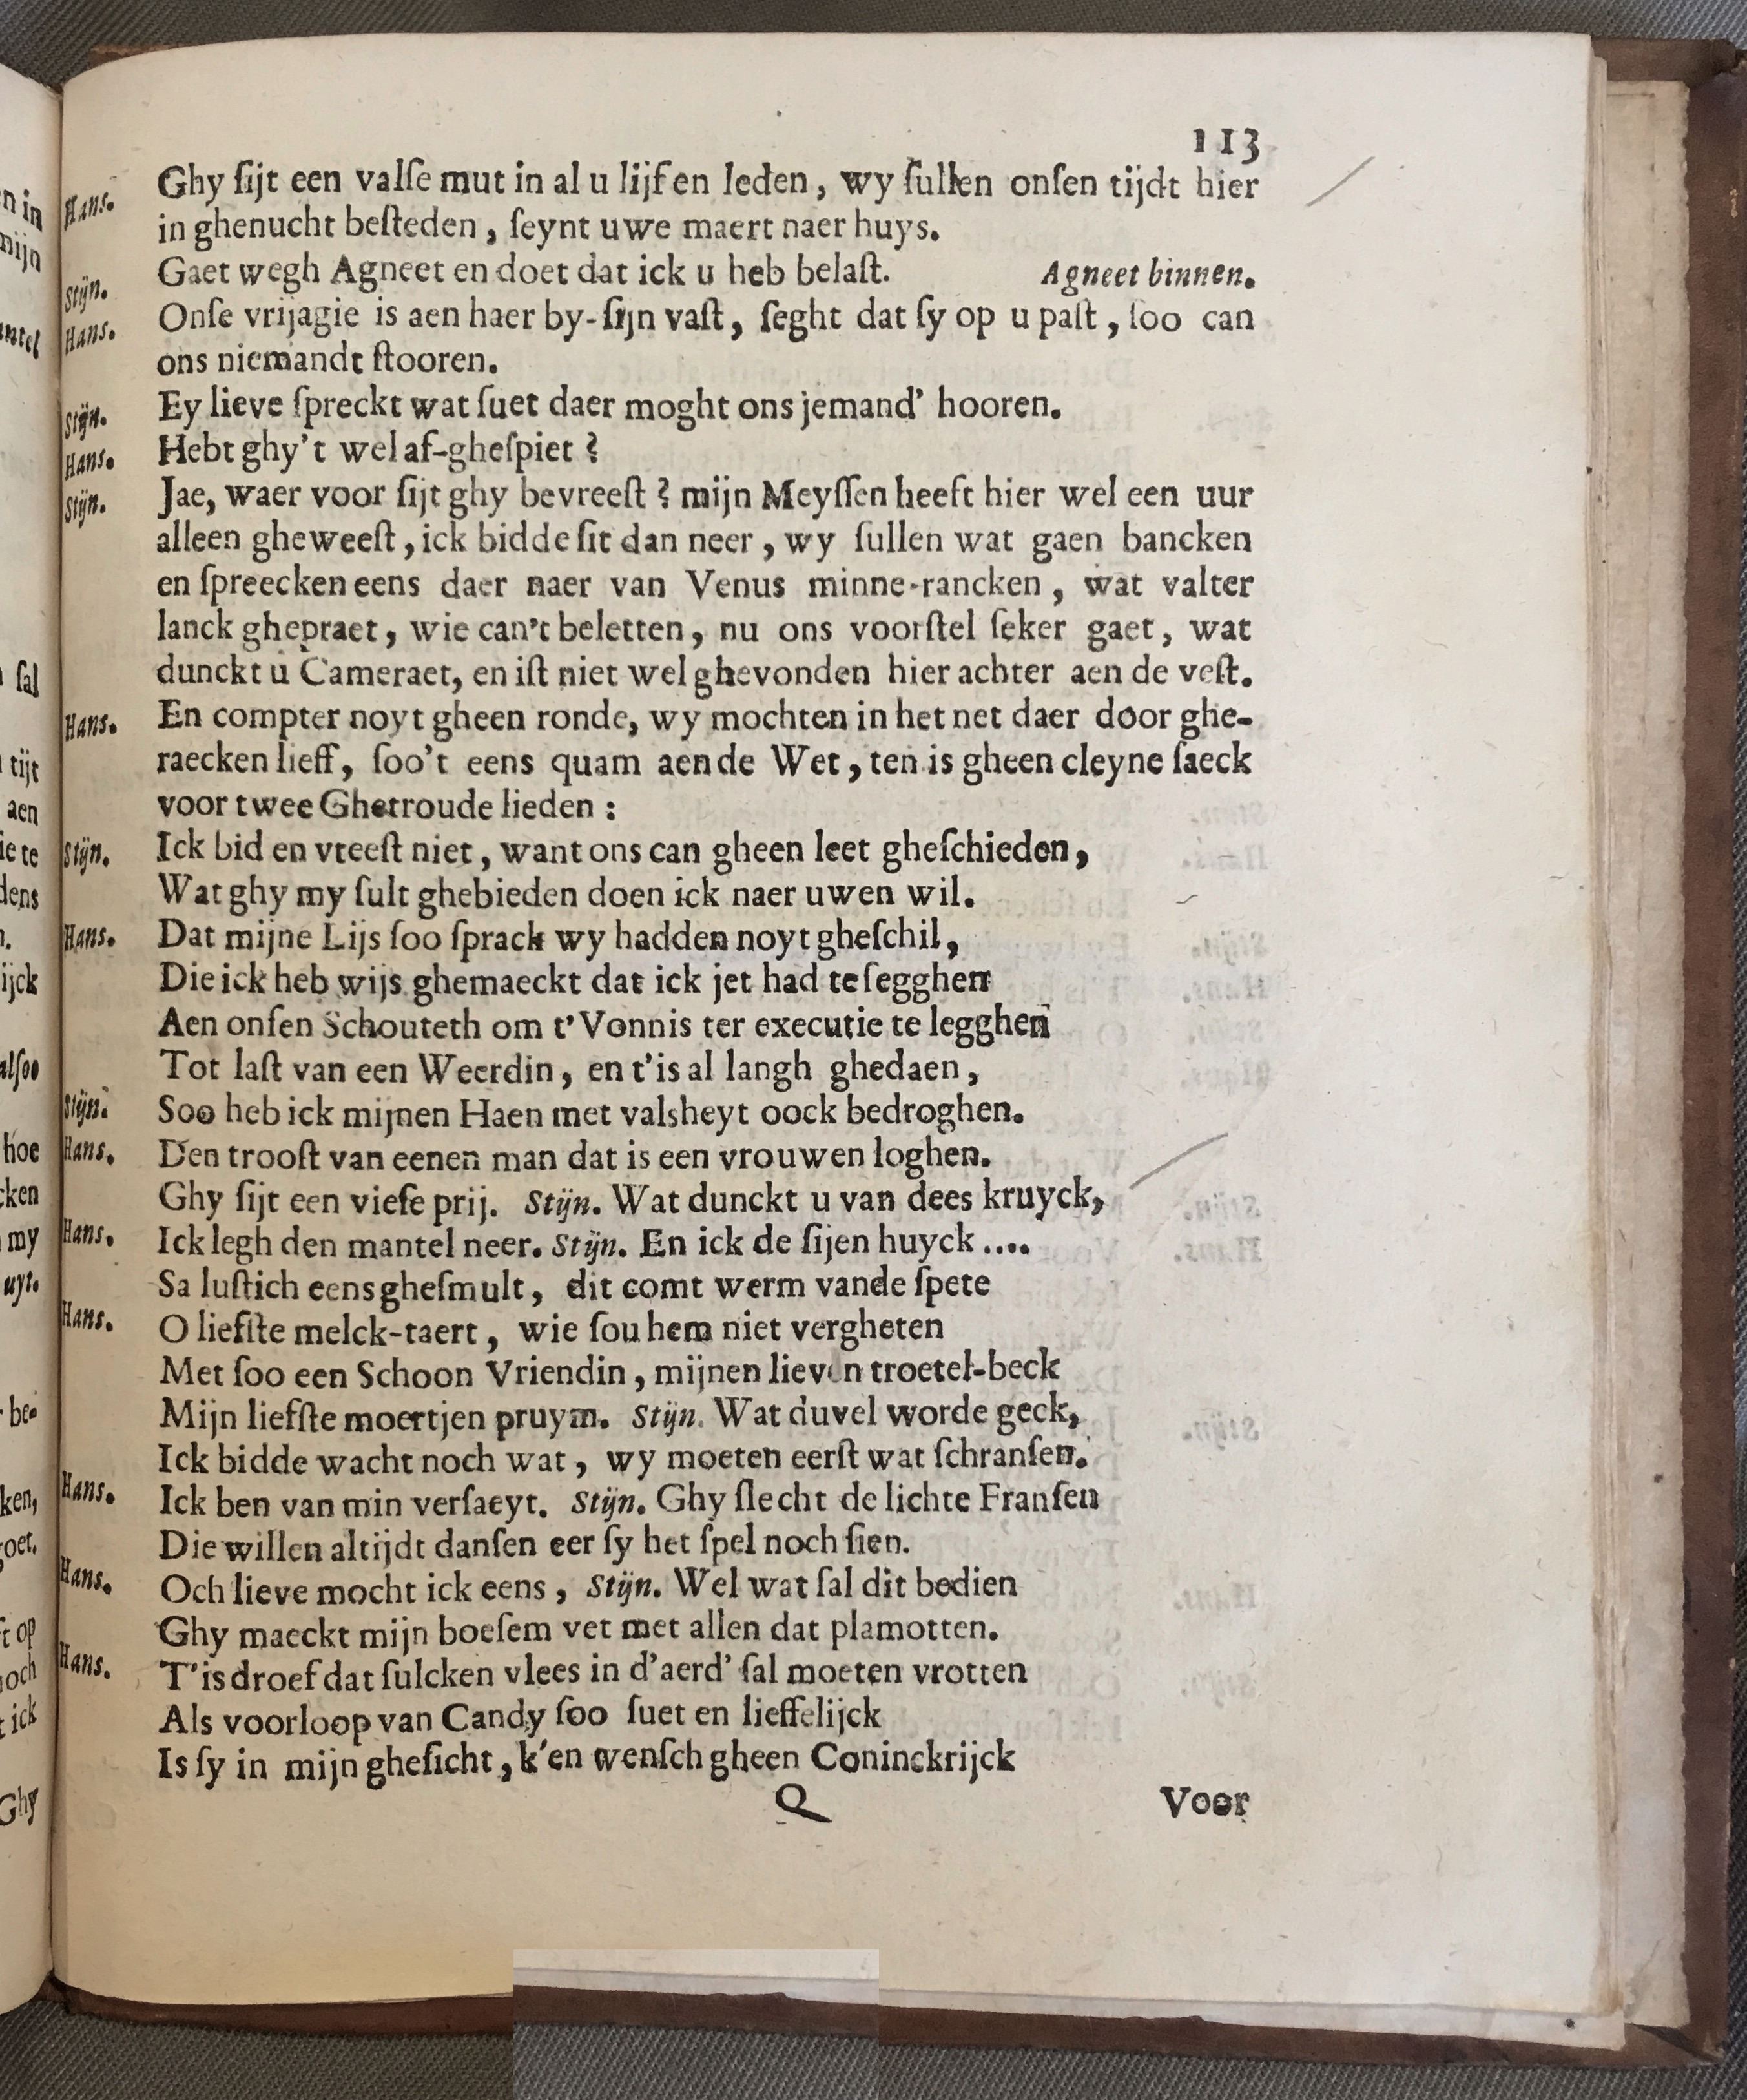 113
Hans. Ghy ſijt een valſe mut in al u lijf en leden, wy ſullen onſen tijdt hier
in ghenucht beſteden, ſeynt uwe maert naer huys.
Stijn. Gaet wegh Agneet en doet dat ick u heb belaſt. Agneet binnen.
Hans. Onſe vrijagie is aen haer by-ſijn vaſt, ſeght dat ſy op u paſt, ſoo can
ons niemandt ſtooren.
Stijn. Ey lieve ſpreckt wat ſuet daer moght ons jemand' hooren.
Hans. Hebt ghy't wel af-gheſpiet?
Stijn. Jae, waer voor ſijt ghy bevreeſt? mijn Meyſſen heeft hier wel een uur
alleen gheweeſt, ick bidde ſit dan neer, wy ſullen wat gaen bancken
en ſpreecken eens daer naer van Venus minne-rancken, wat valter
lanck ghepraet, wie can't beletten, nu ons voorſtel ſeker gaet, wat
dunckt u Cameraet, en iſt niet wel ghevonden hier achter aen de veſt.
Hans. En compter noyt gheen ronde, wy mochten in het net daer door ghe-
raecken lieff, ſoo't eens quam aen de Wet, ten is gheen cleyne ſaeck
voor twee Ghetroude lieden:
Stijn. Ick bid en vreeſt niet, want ons can gheen leet gheſchieden,
Wat ghy my ſult ghebieden doen ick naer uwen wil.
Hans. Dat mijne Lijs ſoo ſprack wy hadden noyt gheſchil,
Die ick heb wijs ghemaeckt dat ick jet had te ſegghen
Aen onſen Schouteth om t'Vonnis ter executie te legghen
Tot laſt van een Weerdin, en t'is al langh ghedaen,
Stijn. Soo heb ick mijnen Haen met valsheyt oock bedroghen.
Hans. Den trooſt van eenen man dat is een vrouwen loghen.
Ghy ſijt een vieſe prij. Stijn. Wat dunckt u van dees kruyck,
Hans. Ick legh den mantel neer. Stijn. En ick de ſijen huyck ....
Sa luſtich eens gheſmult, dit comt werm vande ſpete
Hans. O liefſte melck-taert, wie ſou hem niet vergheten
Met ſoo een Schoon Vriendin, mijnen lieven troetel-beck
Mijn liefſte moertjen pruym. Stijn. Wat duvel worde geck,
Ick bidde wacht noch wat, wy moeten eerſt wat ſchranſen.
Hans. Ick ben van min verſaeyt. Stijn. Ghy ſlecht de lichte Franſen
Die willen altijdt danſen eer ſy het ſpel noch ſien.
Hans. Och lieve mocht ick eens, Stijn. Wel wat ſal dit bedien
Ghy maeckt mijn boeſem vet met allen dat plamotten.
Hans. T'is droef dat ſulcken vlees in d'aerd' ſal moeten vrotten
Als voorloop van Candy ſoo ſuet en lieffelijck
Is ſy in mijn gheſicht, k'en wenſch gheen Coninckrijck
Q Voor